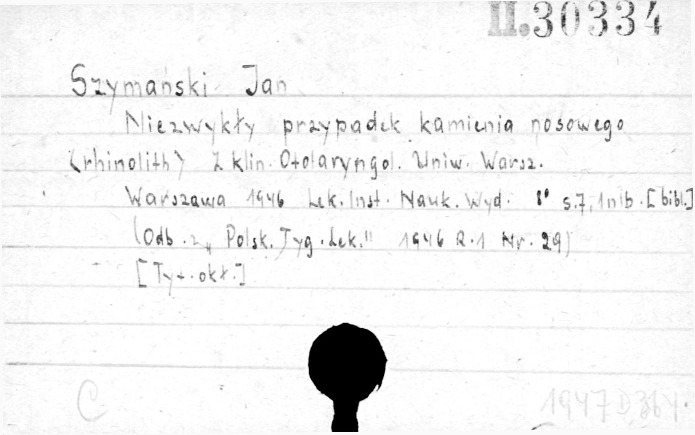 II.30334
Szymański Jan
Niezwykły przypadek kamienia nosowego
(rhinolith) Z klin. Otolaryngol. Uniw. Warsz.
Warszawa 1946 Lek. Inst. Nauk. Wyd. 8° s.7, 1nlb. [bibl.]
(Odb. z „Polsk. Tyg. Lek." 1946 R.1 Nr. 29)
[Tyt. okł.]
C.
1947 D 364.